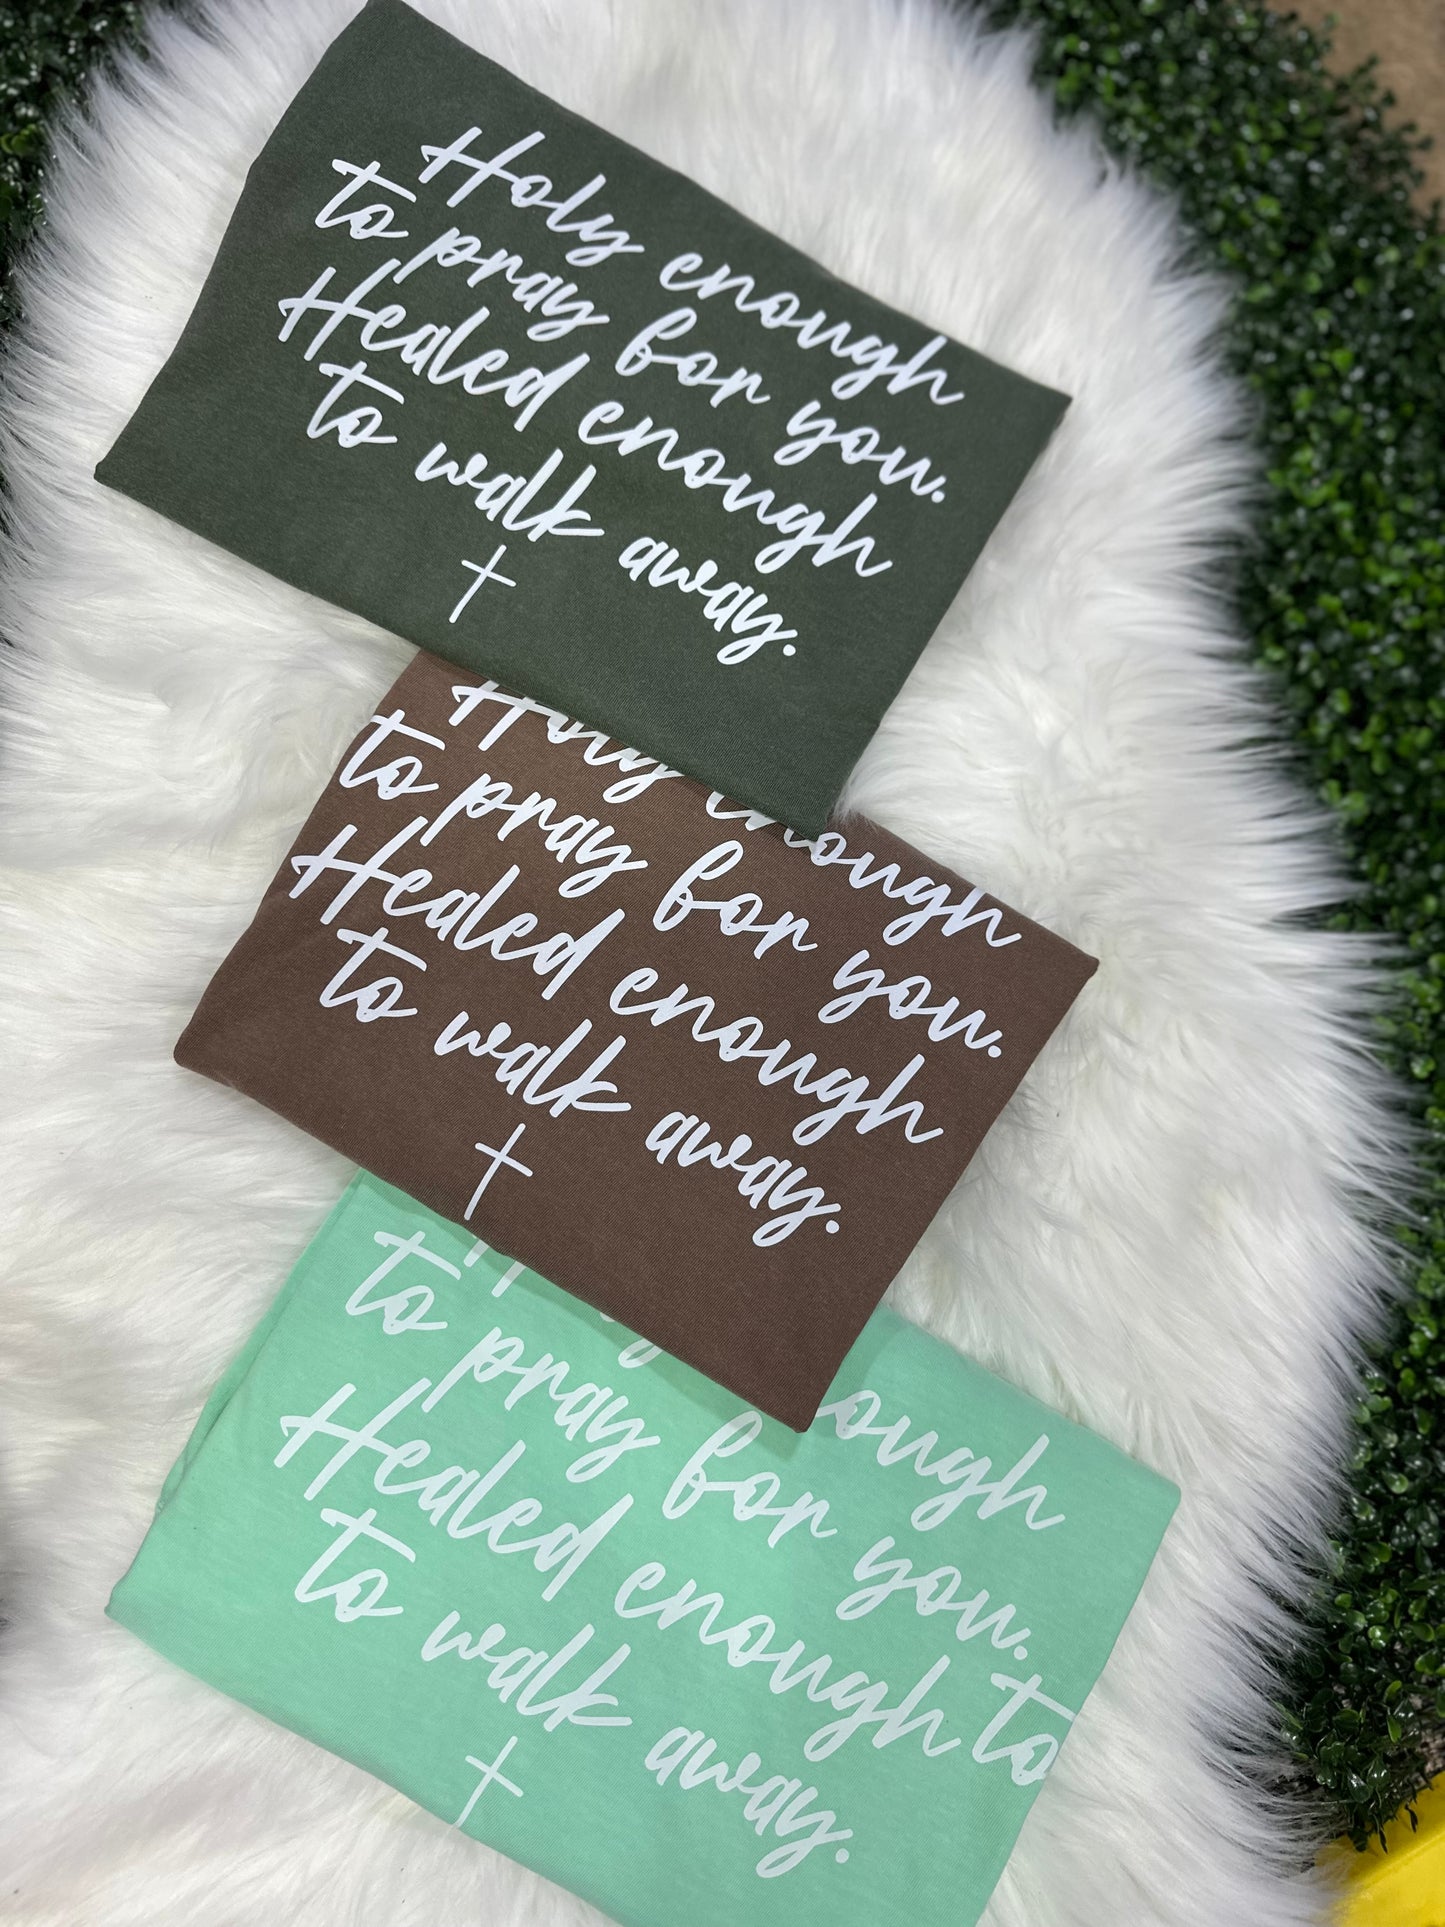 Holy enough
to pray for you.
Healed enough
to walk away.
Holy enough
to pray for you.
Healed enough
to walk away.
ough
to pray for you.
Healed enough to
to walk away.